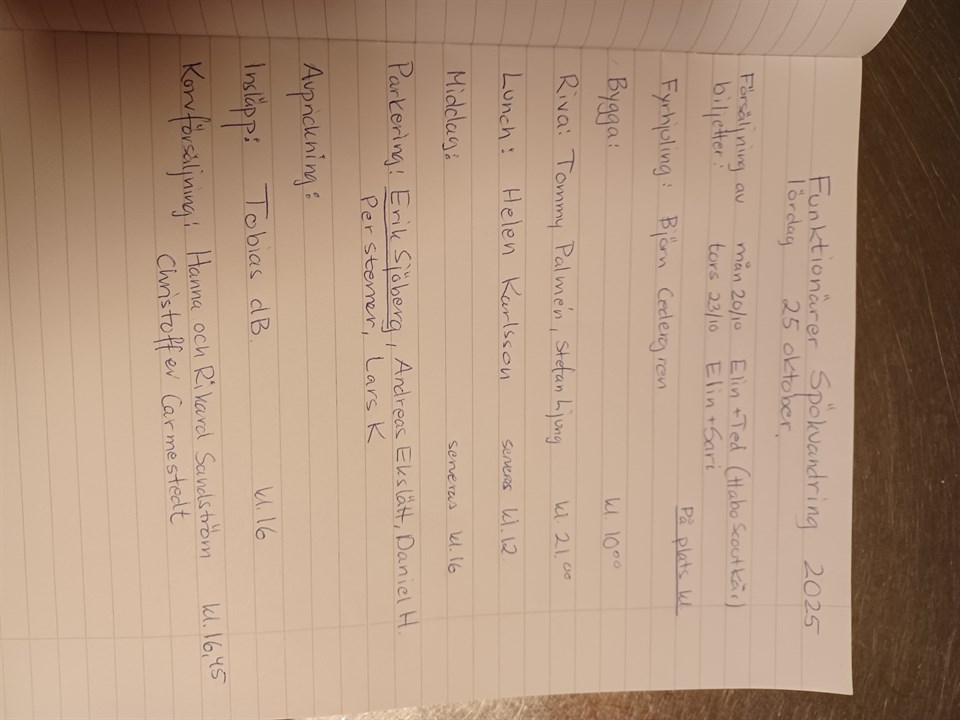 Funktionärer Spökvandring 2025
lördag 25 oktober.
Försäljning av mån 20/10 Elin + Ted (Habo Scoutkår)
biljetter: tors 23/10 Elin + Sari
På plats kl
Fyrhjuling: Björn Cedergren
Bygga: kl. 10⁰⁰
Riva: Tommy Palmén, Stefan Ljung kl. 21.⁰⁰
Lunch: Helen Karlsson serveras kl. 12
Middag: serveras kl. 16
Parkering: Erik Sjöberg, Andreas Ekslätt, Daniel H.
Per Sterner, Lars K
Avprickning:
Insläpp: Tobias dB. kl. 16
Korvförsäljning: Hanna och Rikard Sandström kl. 16,45
Christoffer Carmestedt